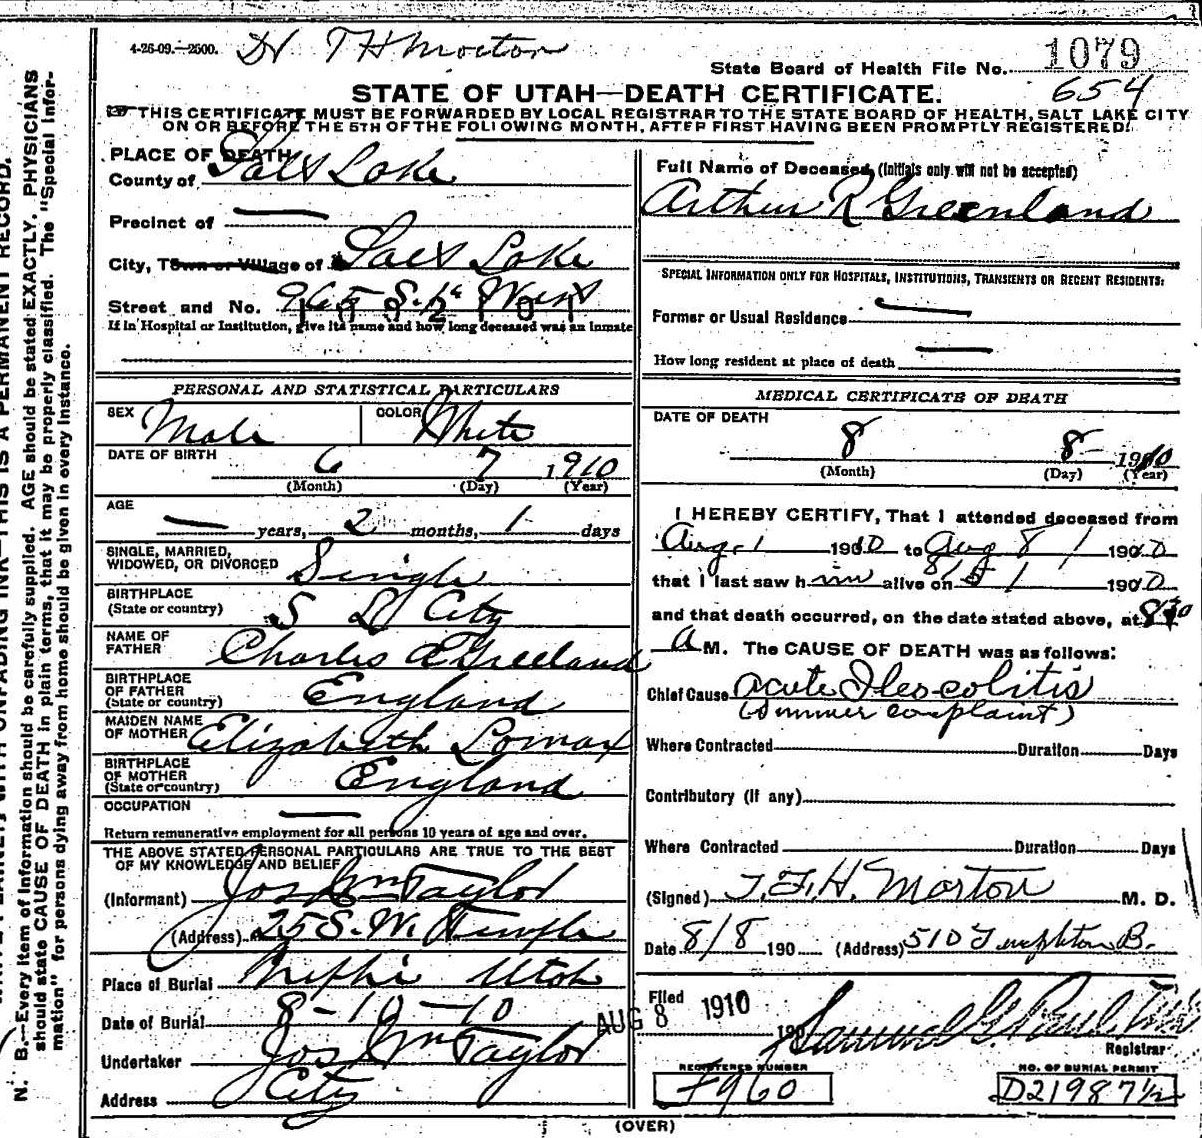 4-26-09.—2500.
Dr T H Morton
State Board of Health File No. 1079
654
STATE OF UTAH—DEATH CERTIFICATE.
THIS CERTIFICATE MUST BE FORWARDED BY LOCAL REGISTRAR TO THE STATE BOARD OF HEALTH, SALT LAKE CITY
ON OR BEFORE THE 5TH OF THE FOLLOWING MONTH, AFTER FIRST HAVING BEEN PROMPTLY REGISTERED.
PLACE OF DEATH
County of Salt Lake
Precinct of —
City, Town or Village of Salt Lake
Street and No. 965 S. 1st West
If in Hospital or Institution, give its name and how long deceased was an inmate
Full Name of Deceased, (Initials only will not be accepted)
Arthur R Greenland
SPECIAL INFORMATION ONLY FOR HOSPITALS, INSTITUTIONS, TRANSIENTS OR RECENT RESIDENTS:
Former or Usual Residence —
How long resident at place of death —
PERSONAL AND STATISTICAL PARTICULARS
SEX Male
COLOR White
DATE OF BIRTH
6 7 1910
(Month) (Day) (Year)
AGE
— years, 2 months, 1 days
SINGLE, MARRIED,
WIDOWED, OR DIVORCED Single
BIRTHPLACE
(State or country) S L City
NAME OF
FATHER Charles E Greeland
BIRTHPLACE
OF FATHER
(State or country) England
MAIDEN NAME
OF MOTHER Elizabeth Lomax
BIRTHPLACE
OF MOTHER
(State or country) England
OCCUPATION —
Return remunerative employment for all persons 10 years of age and over.
THE ABOVE STATED PERSONAL PARTICULARS ARE TRUE TO THE BEST
OF MY KNOWLEDGE AND BELIEF
(Informant) Jos Wm Taylor
(Address) 25 S. W. Temple
Place of Burial Nephi Utah
Date of Burial 8-10-10
Undertaker Jos Wm Taylor
Address City
MEDICAL CERTIFICATE OF DEATH
DATE OF DEATH
8 8 1910
(Month) (Day) (Year)
I HEREBY CERTIFY, That I attended deceased from
Aug. 1 1910 to Aug 8 1900
that I last saw him alive on 8/ 1900
and that death occurred, on the date stated above, at 830
A M. The CAUSE OF DEATH was as follows:
Chief Cause Acute Ileo-colitis
(Summer complaint)
Where Contracted Duration Days
Contributory (if any)
Where Contracted Duration Days
(Signed) T. H. Morton M. D.
Date 8/8 190 (Address) 510 Templeton B.
Filed AUG 8 1910
190
Samuel G Paul
Registrar
REGISTERED NUMBER
F960
NO. OF BURIAL PERMIT
D21987½
(OVER)
N. B.—Every item of information should be carefully supplied. AGE should be stated EXACTLY. PHYSICIANS
should state CAUSE OF DEATH in plain terms, that it may be properly classified. The "Special Infor-
mation" for persons dying away from home should be given in every instance.
WITH UNFADING INK—THIS IS A PERMANENT RECORD.